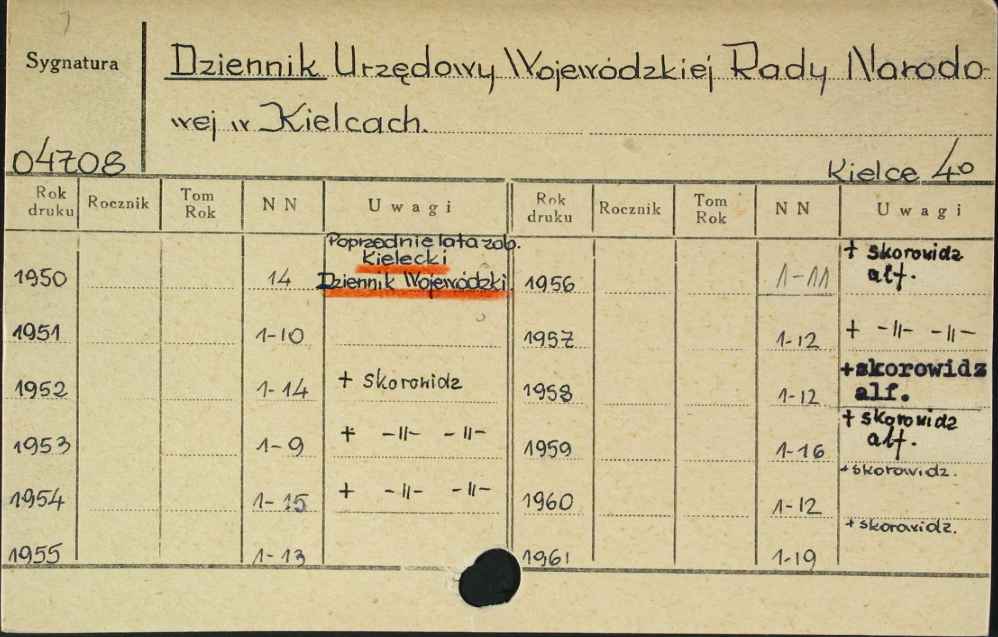 Sygnatura
Dziennik Urzędowy Wojewódzkiej Rady Narodo-
wej w Kielcach.
04708
Kielce 4o
Rok druku Rocznik Tom Rok NN Uwagi Rok druku Rocznik Tom Rok NN Uwagi
Poprzednie lata zob.
Kielecki
1950 14 Dziennik Wojewódzki 1956 1-11 + skorowidz alf.
1951 1-10 1957 1-12 + -||- -||-
1952 1-14 + skorowidz 1958 1-12 +skorowidz alf.
1953 1-9 + -||- -||- 1959 1-16 + skorowidz alf.
1954 1-15 + -||- -||- 1960 1-12 +skorowidz.
1955 1-13 1961 1-19 +skorowidz.